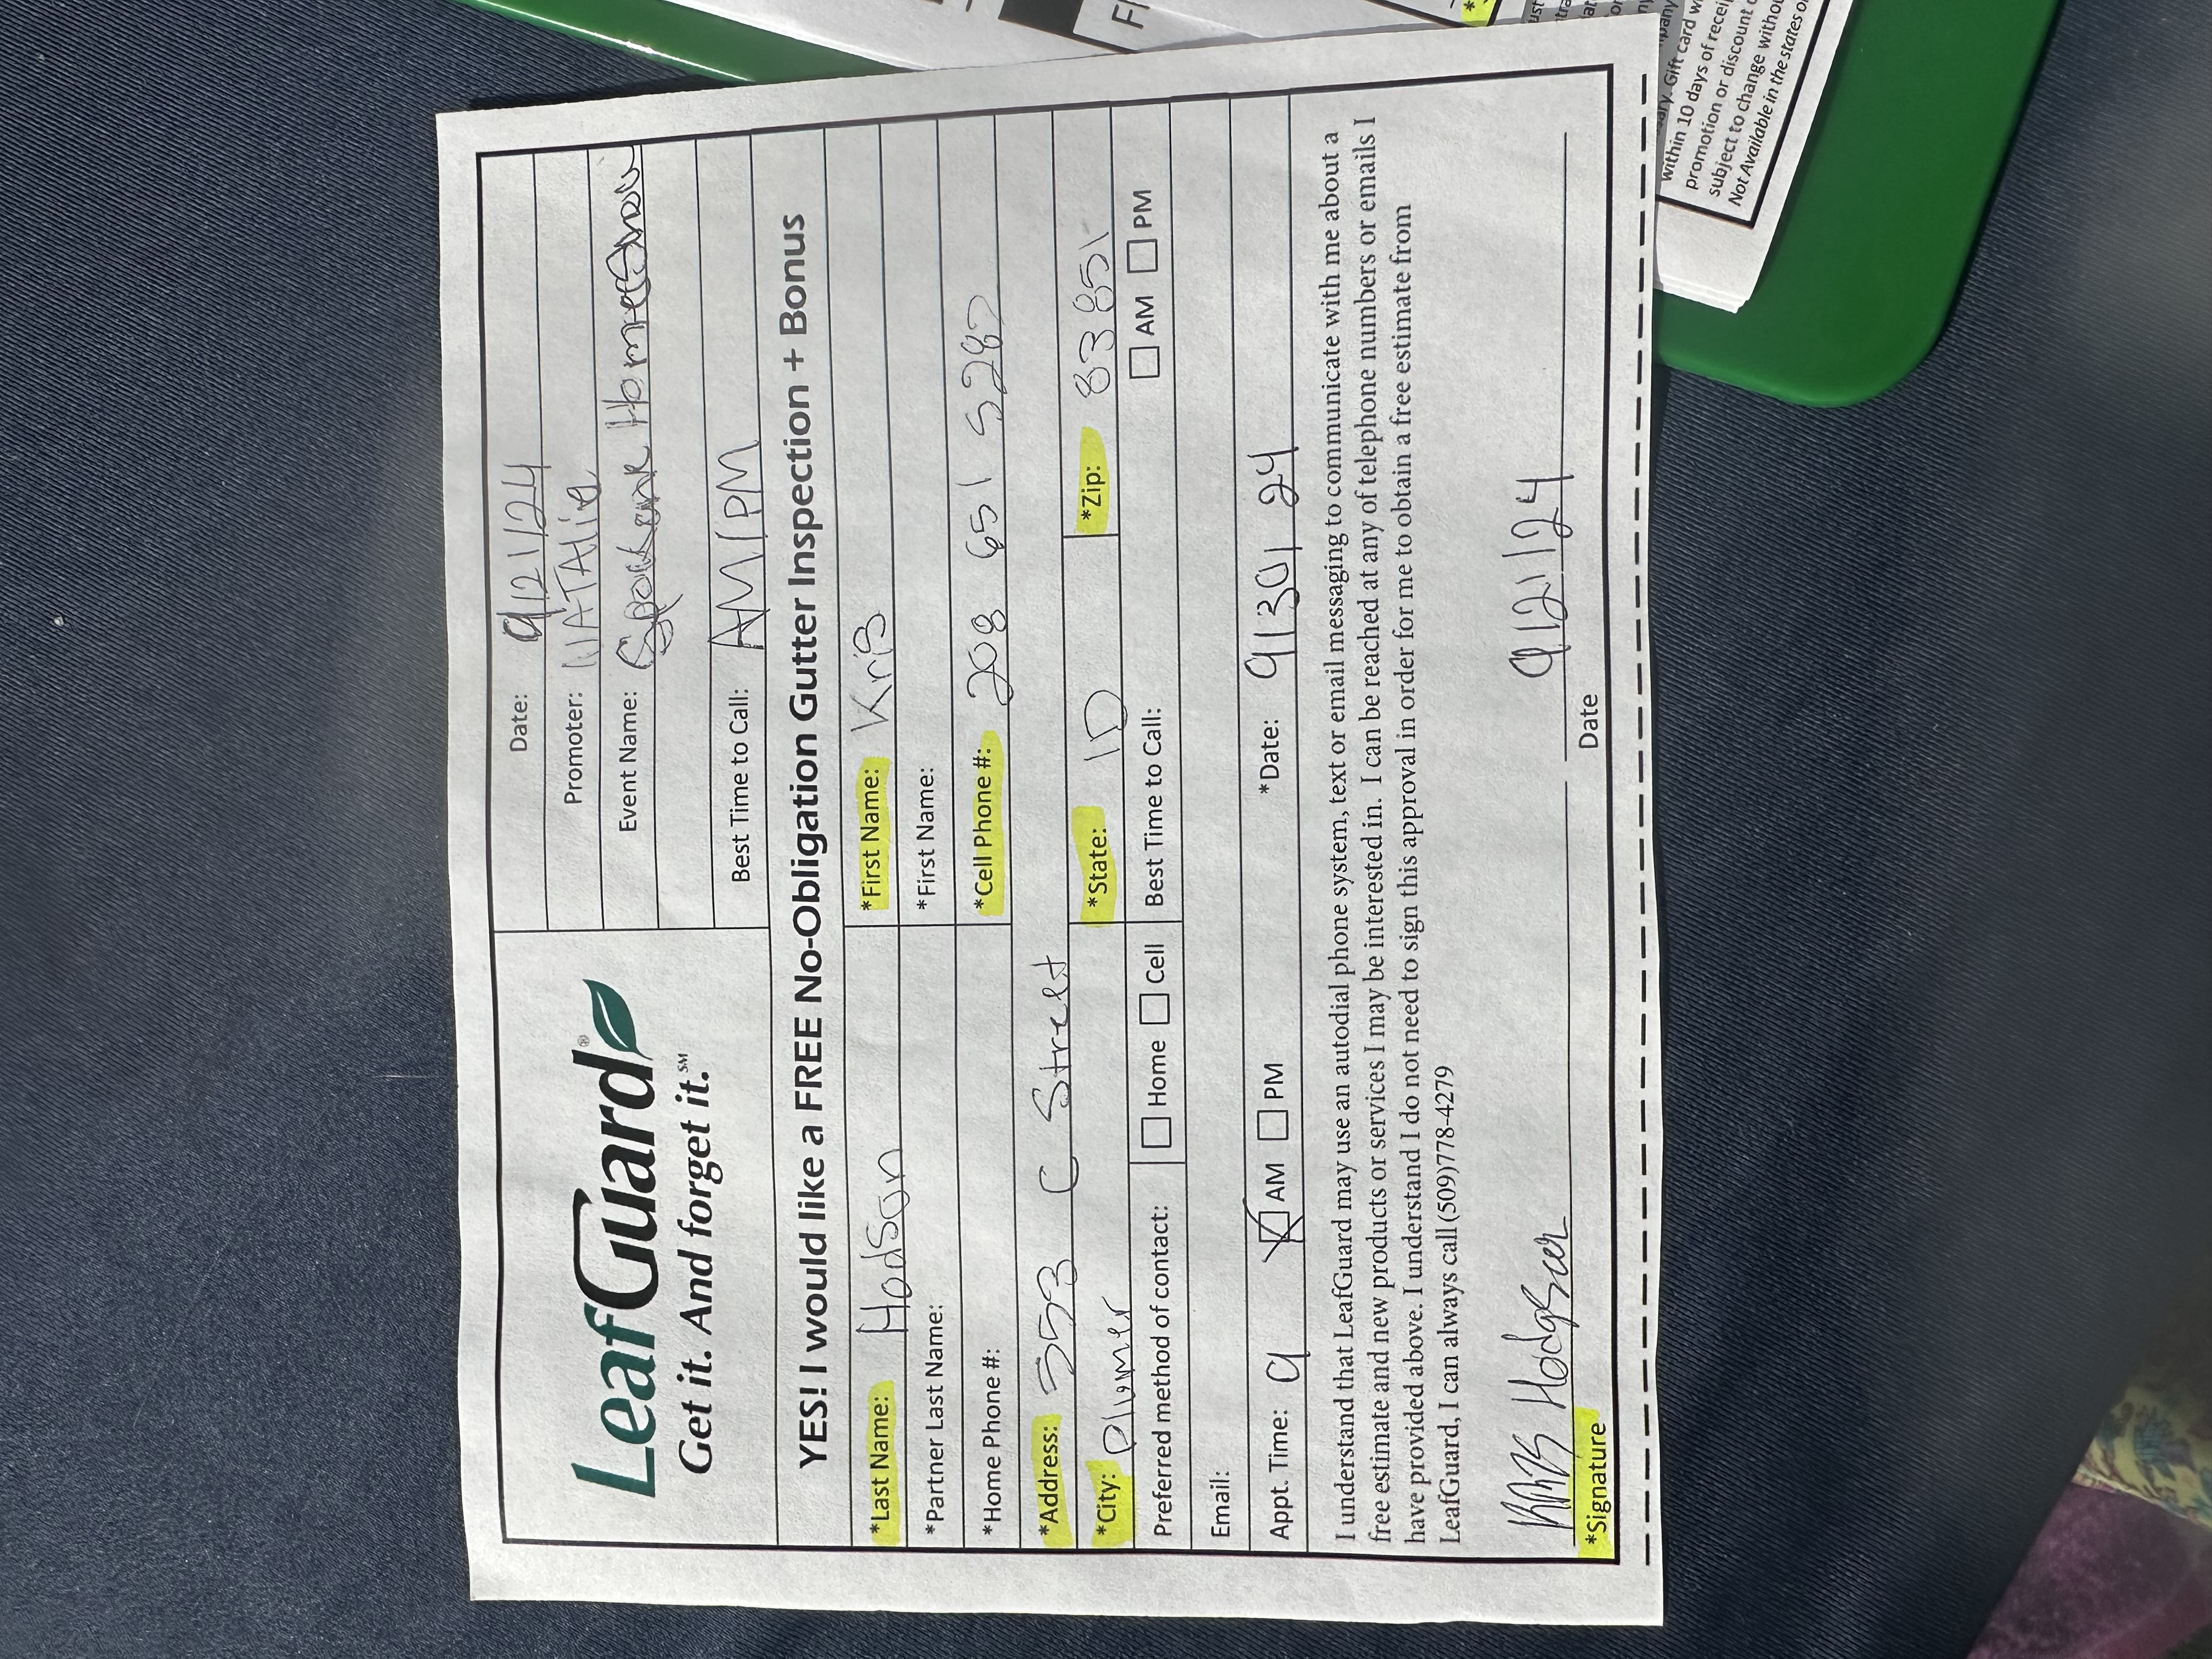 LeafGuard®
Get it. And forget it.℠
Date: 9/21/24
Promoter: NATAlie
Event Name: Spokane HomeShow
Best Time to Call: AM/PM
YES! I would like a FREE No-Obligation Gutter Inspection + Bonus
*Last Name: Hodson *First Name: Kris
*Partner Last Name: *First Name:
*Home Phone #: *Cell Phone #: 208 651 5282
*Address: 553 C Street
*City: Plumer *State: ID *Zip: 83851
Preferred method of contact: Home Cell Best Time to Call: AM PM
Email:
Appt. Time: 9 AM PM *Date: 9/30/24
I understand that LeafGuard may use an autodial phone system, text or email messaging to communicate with me about a
free estimate and new products or services I may be interested in. I can be reached at any of telephone numbers or emails I
have provided above. I understand I do not need to sign this approval in order for me to obtain a free estimate from
LeafGuard, I can always call (509)778-4279
Kris Hodgson 9/21/24
*Signature Date
Gift card
within 10 days of
promotion or discount
subject to change
Not Available in the states